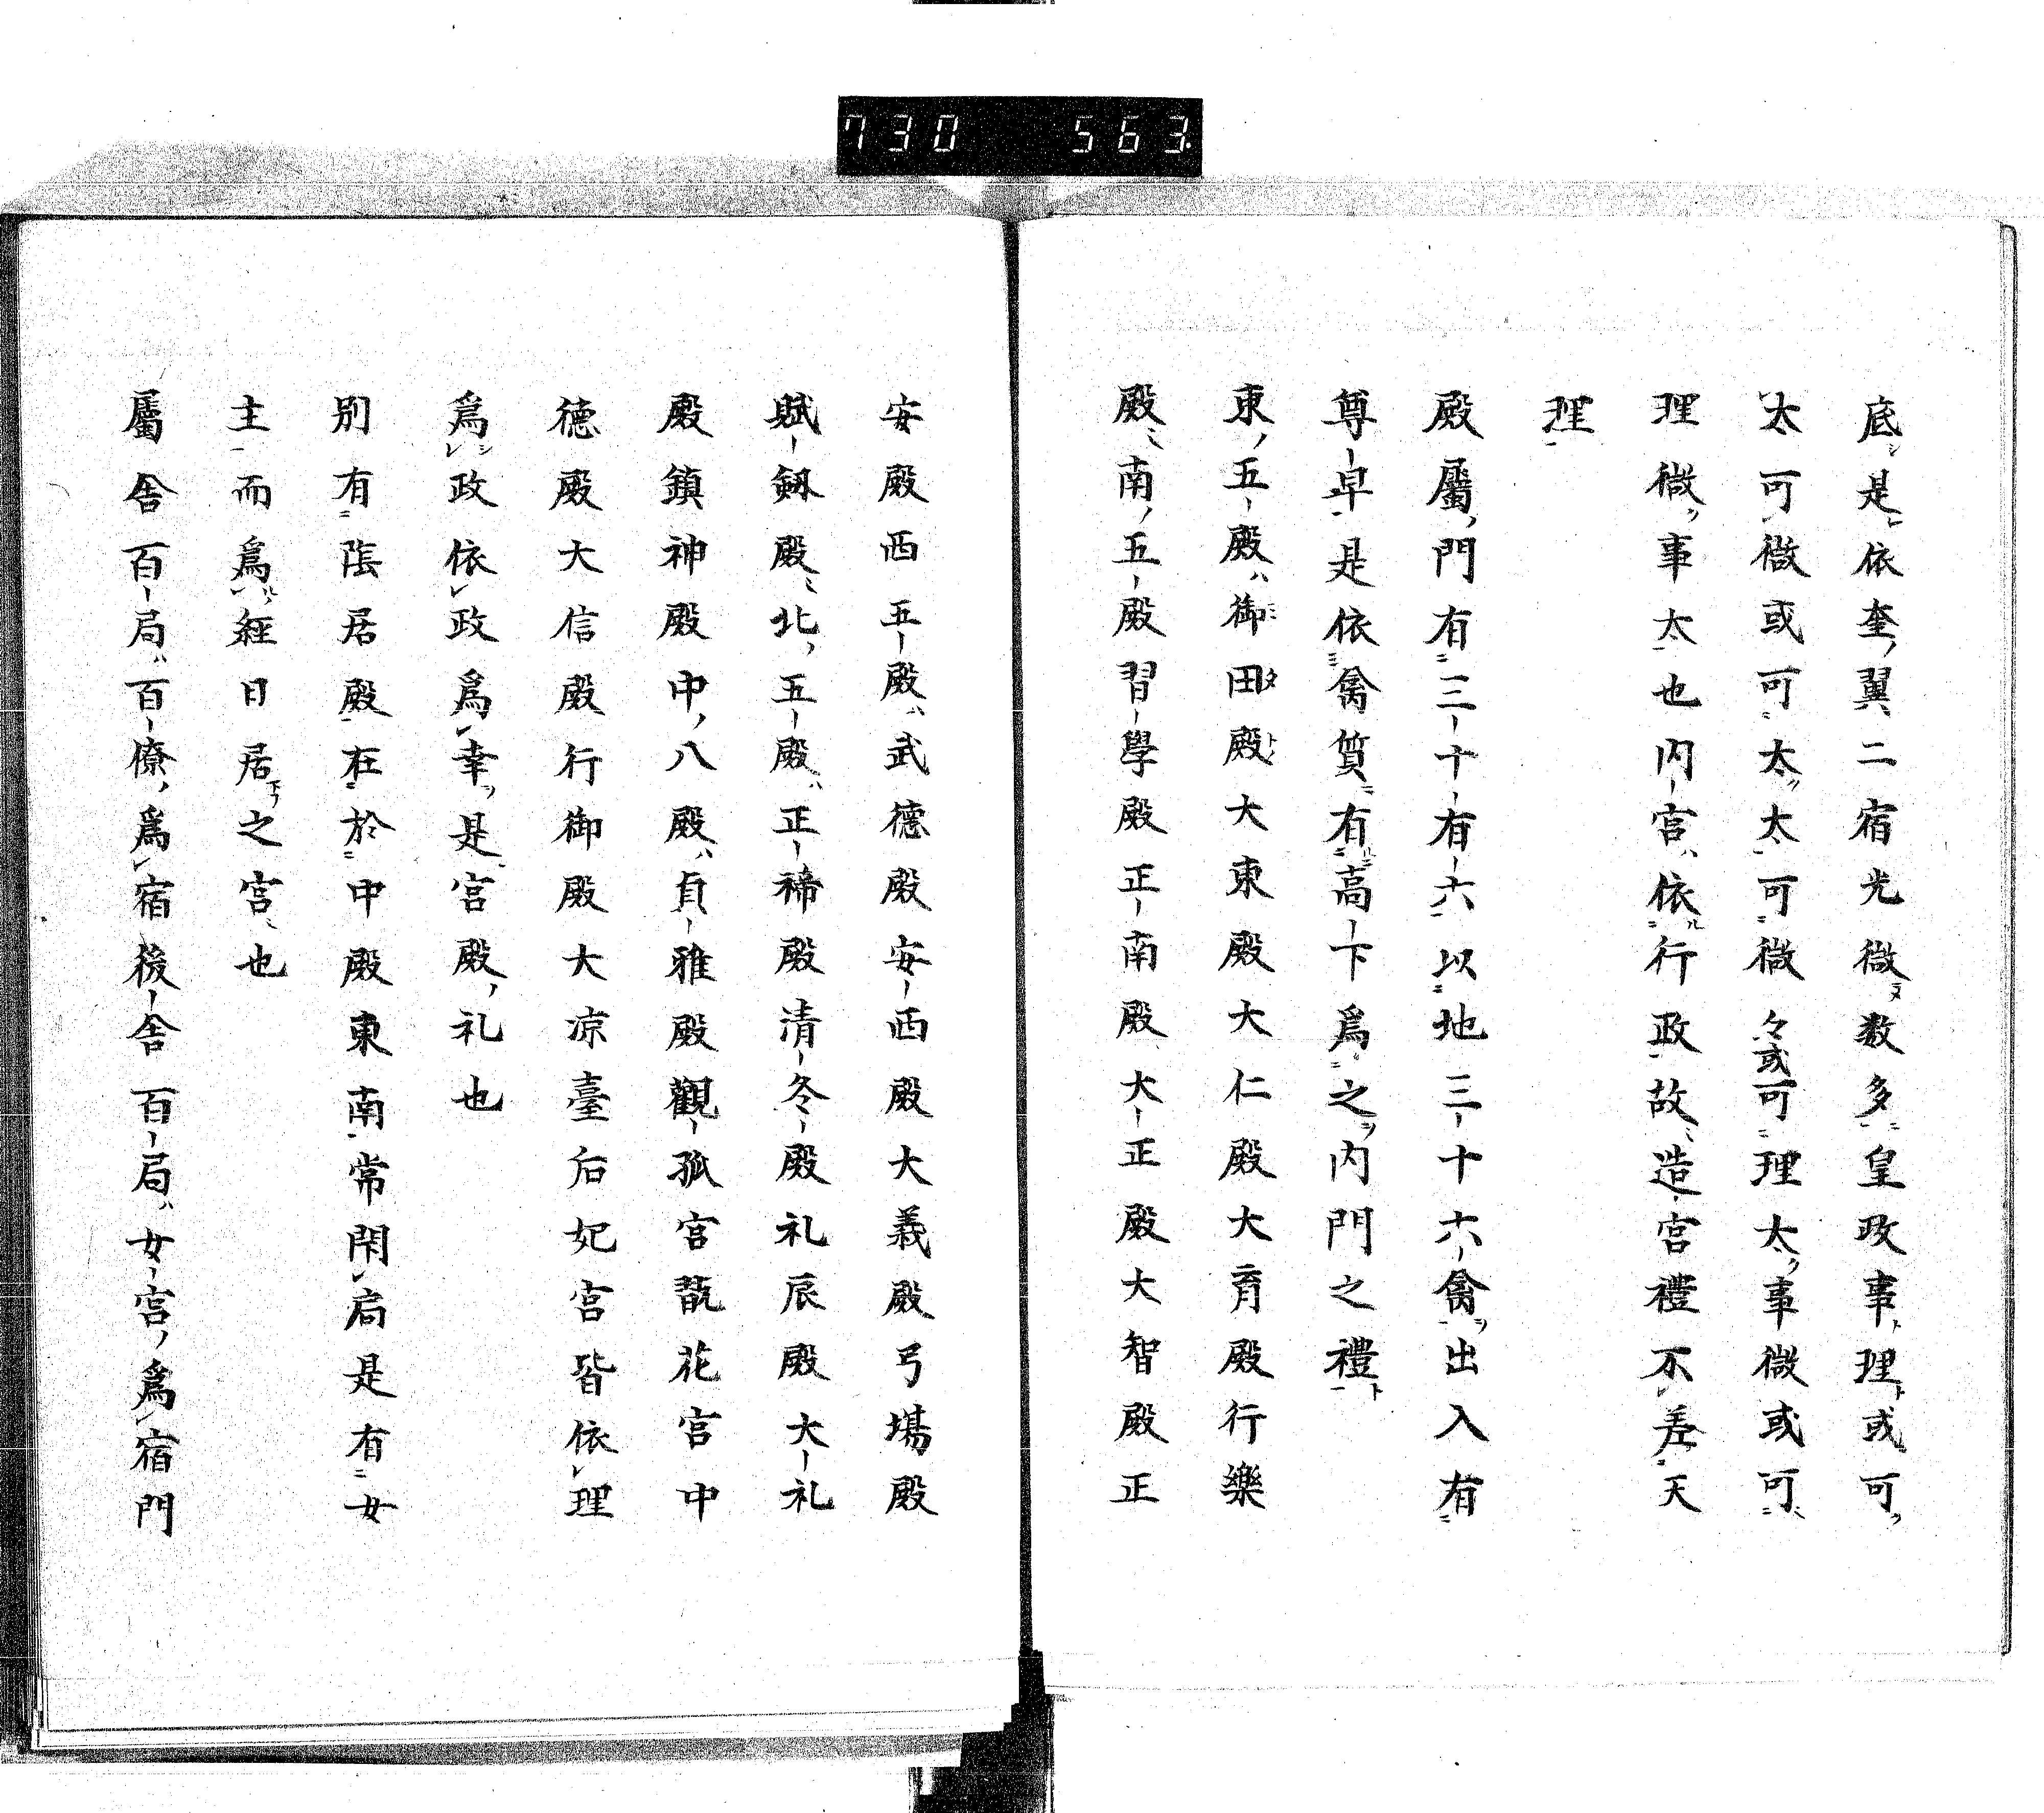 730 563
底是依奎翼二宿光微数多皇政事理或可
太可微或可太太可微々或可理太事微或可
理微事太也内宮依行政故造宮禮不差天
理
殿屬門有三十有六以地三十六禽出入有
尊卑是依禽質有高下爲之内門之禮
東五殿御田殿大東殿大仁殿大育殿行樂
殿南五殿習學殿正南殿大正殿大智殿正
安殿西五殿武德殿安西殿大義殿弓場殿
賦劔殿北五殿正禘殿清冬殿礼辰殿大礼
殿鎮神殿中八殿貞雅殿觀孤宮翫花宮中
德殿大信殿行御殿大凉臺后妃宮皆依理
爲政依政爲幸是宮殿礼也
別有陰居殿在於中殿東南常閇扃是有女
主而爲經日居之宮也
屬舎百局百僚爲宿後舎百局女宮爲宿門